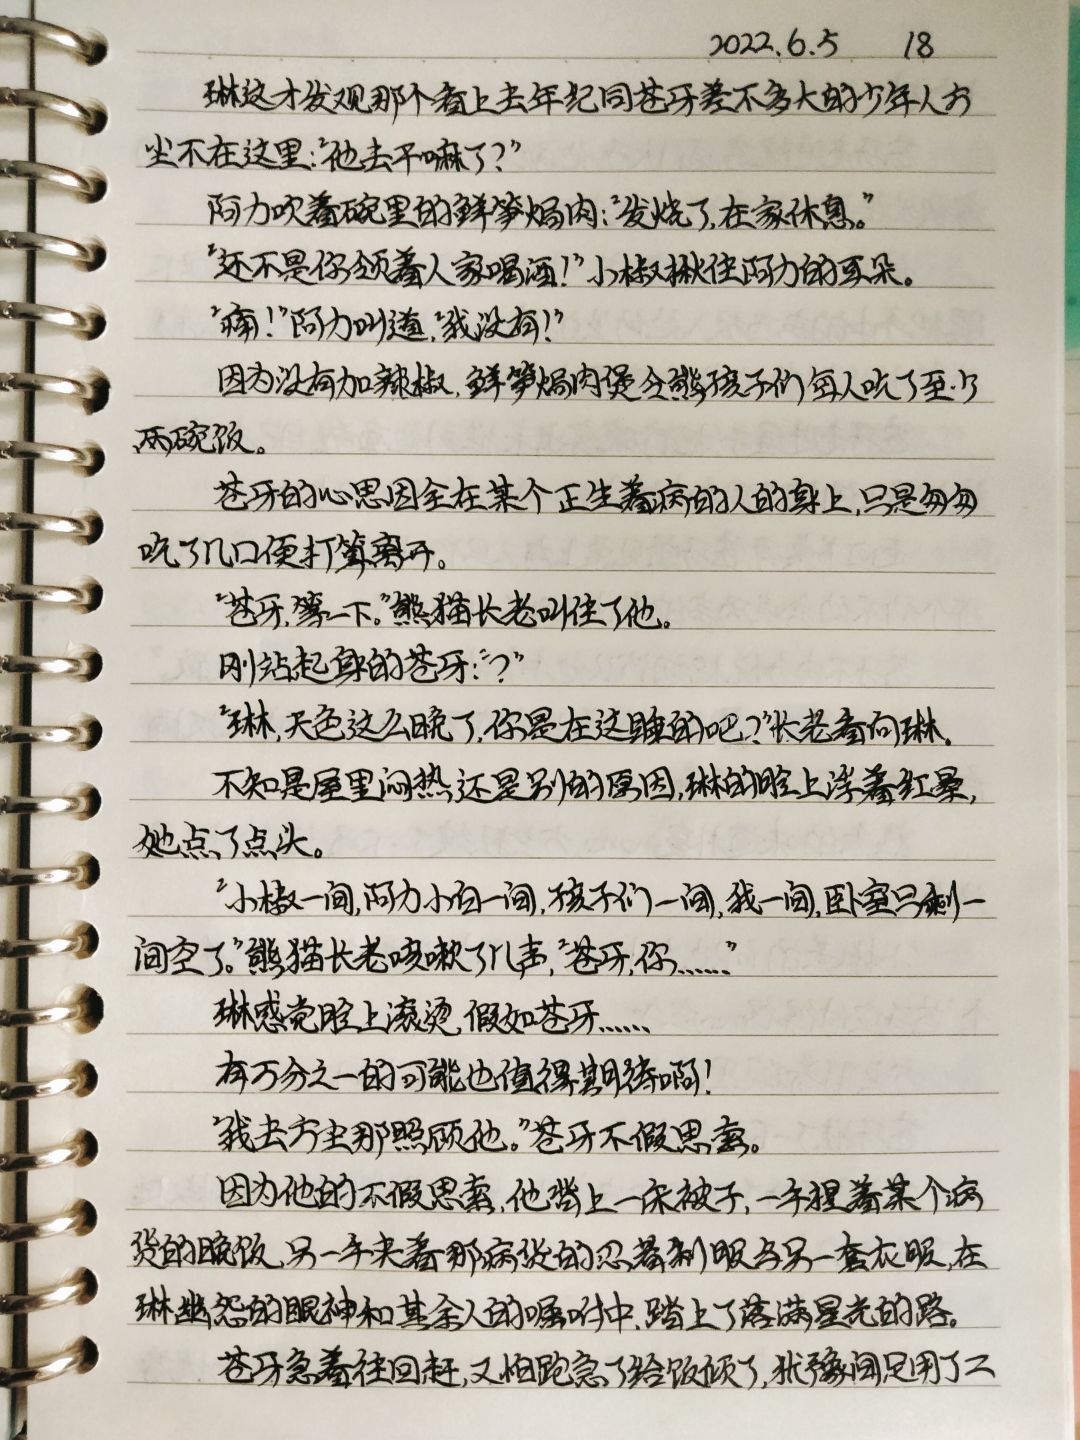 2022.6.5 18
琳这才发现那个看上去年纪同苍牙差不多大的少年人方
尘不在这里：“他去干嘛了？”
阿力吹着碗里的鲜笋焗肉：“发烧了，在家休息。”
“还不是你领着人家喝酒！”小椒揪住阿力的耳朵。
“痛！”阿力叫道，“我没有！”
因为没有加辣椒，鲜笋焗肉煲令熊孩子们每人吃了至少
两碗饭。
苍牙的心思因全在某个正生着病的人的身上，只是匆匆
吃了几口便打算离开。
“苍牙，等一下。”熊猫长老叫住了他。
刚站起身的苍牙：“？”
“琳，天色这么晚了，你是在这睡的吧？”长老看向琳。
不知是屋里闷热还是别的原因，琳的脸上浮着红晕，
她点了点头。
“小椒一间，阿力小白一间，孩子们一间，我一间，卧室只剩一
间空了。”熊猫长老咳嗽了几声，“苍牙，你……”
琳感觉脸上滚烫，假如苍牙……
有万分之一的可能也值得期待啊！
“我去方尘那照顾他。”苍牙不假思索。
因为他的不假思索，他背上一床被子，一手提着某个病
货的晚饭，另一手夹着那病货的忍者制服与另一套衣服，在
琳幽怨的眼神和其余人的嘱咐中，踏上了落满星光的路。
苍牙急着往回赶，又怕跑急了给饭倾了，犹豫间足用了二